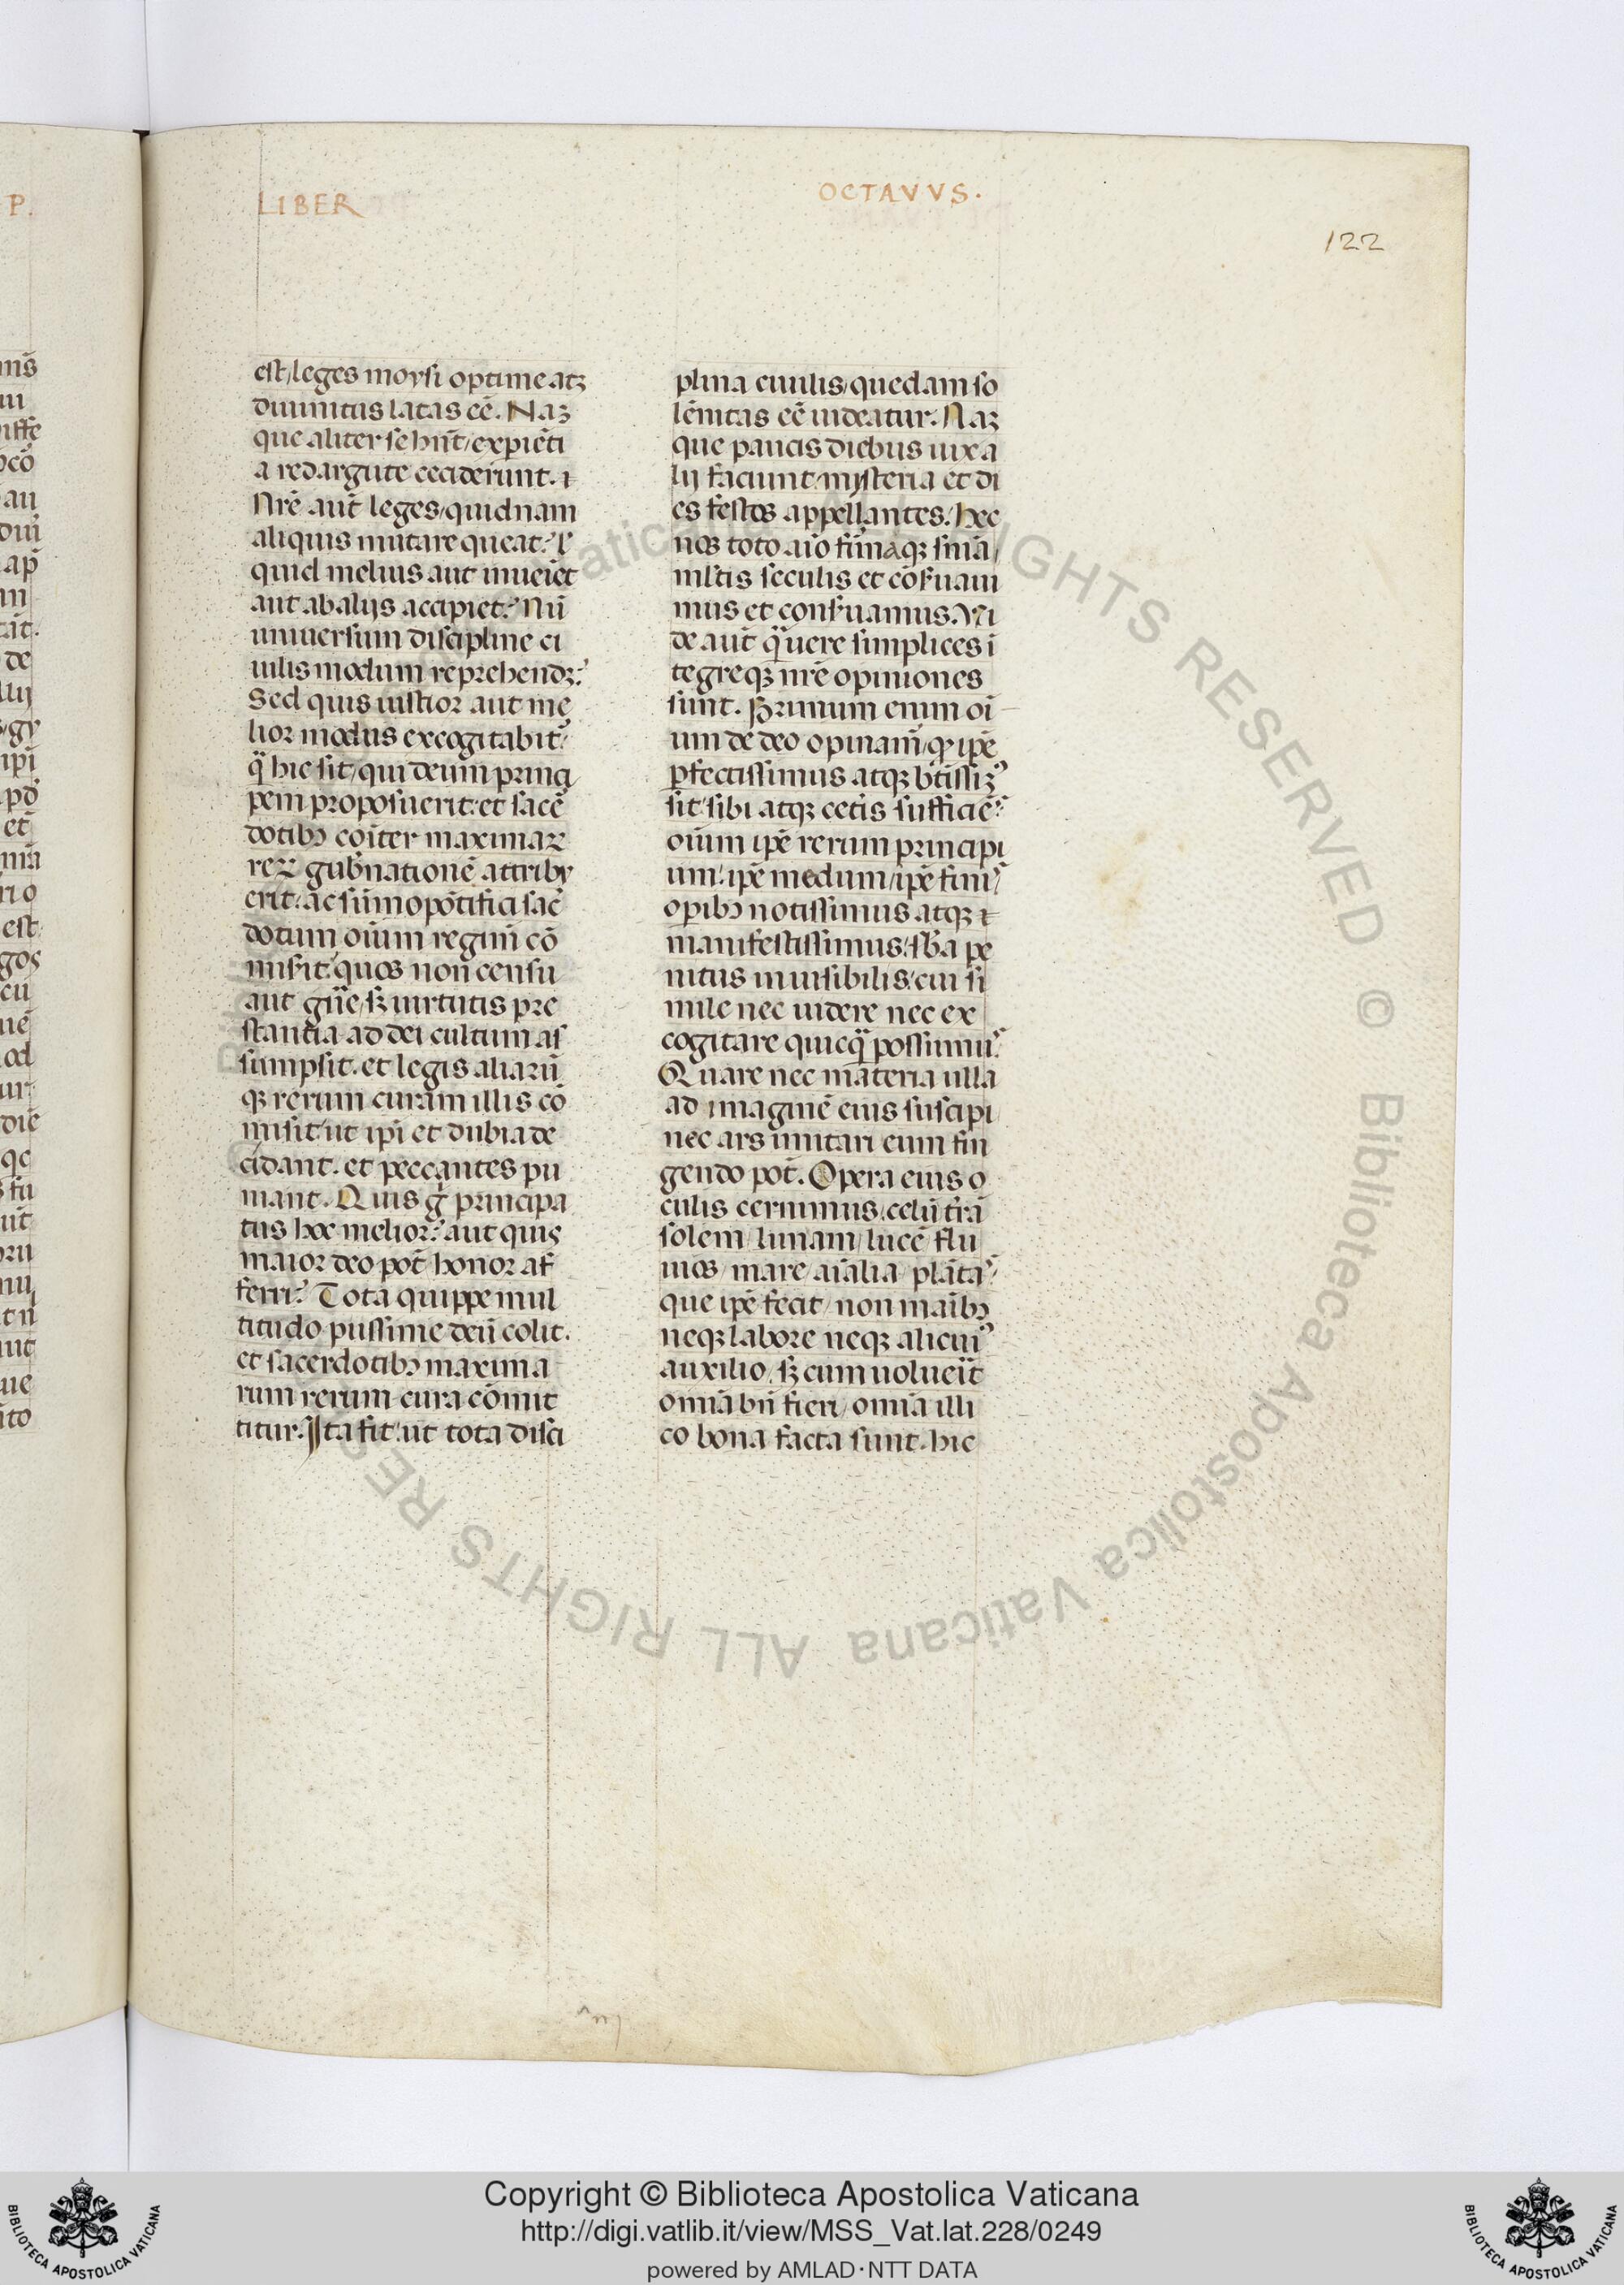 P.
LIBER
OCTAVVS.
122
est/leges moysi optime atqꝫ
diuinitus latas eē. Naꝫ
que aliter se hn̄t/expiēti
a redargute ceciderunt. ⁊
Nrē aut̄ leges/quidnam
aliquis mutare queat?
quid melius aut inueīet
aut ab alijs accipiet? Nū
uniuersum discipline ci
uilis modum reprehendꝫ?
Sed quis iustior aut me
lior modus excogitabit̄
q̄ hic sit/qui deum princi
pem proposuerit: et sacē
dotibꝰ cōiter maximaꝝ
reꝝ gub̄nationē attribu
erit: ac sūmo pōtifici sac̄
dotum oīum regim̄ cō
misit: quos non censu
aut gn̄e/sꝫ uirtutis pre
stantia ad dei cultum as
sumpsit. et legis aliarū
qꝫ rerum curam illis cō
misit: ut ip̄i et dubia de
cidant. et peccantes pu
niant. Quis g̊ principa
tus hoc melior? aut quis
maior deo pōt honor af
ferri? Tota quippe mul
titudo piissime deū colit.
et sacerdotibꝰ maxima
rum rerum cura cōmit
titur. Ita fit: ut tota disci
plina ciuilis/quedam so
lēnitas eē uideatur. Naꝫ
que paucis diebus uix a
lij faciunt mysteria et di
es festos appellantes. hec
nos toto aīo firmaqꝫ sn̄ia/
ml̄tis seculis et cōẜuaui
mus et conẜuamus. Vi
de aut̄ q̄ uere simplices ī
tegreqꝫ nrē opiniones
sunt. Primum enim oī
um de deo opinam̄/qꝙ ip̄e
ꝑfectissimus atqꝫ btissiꝫꝰ
sit/sibi atqꝫ cetis sufficiē
oīum ip̄e rerum principi
um: ip̄e medum/ip̄e finis/
oꝑibꝰ notissimus atqꝫ
manifestissimus/sb̄a pe
nitus inuisibilis: cui si
mile nec uidere nec ex
cogitare quicq̄ possumus.
Quare nec materia ulla
ad imaginē eius suscipi
nec ars imitari eum fin
gendo pōt. Opera eius o
culis cernimus/celū t̄rā
solem/lunam/lucē flu
uios/mare/aīalia/plātas
que ip̄e fecit/non maībꝰ
neqꝫ labore neqꝫ alicuiꝰ
auxilio/sꝫ cum uolueīt
omīa bn̄ fieri/omīa illi
co bona facta sunt. hic
Copyright © Biblioteca Apostolica Vaticana
http://digi.vatlib.it/view/MSS_Vat.lat.228/0249
powered by AMLAD·NTT DATA